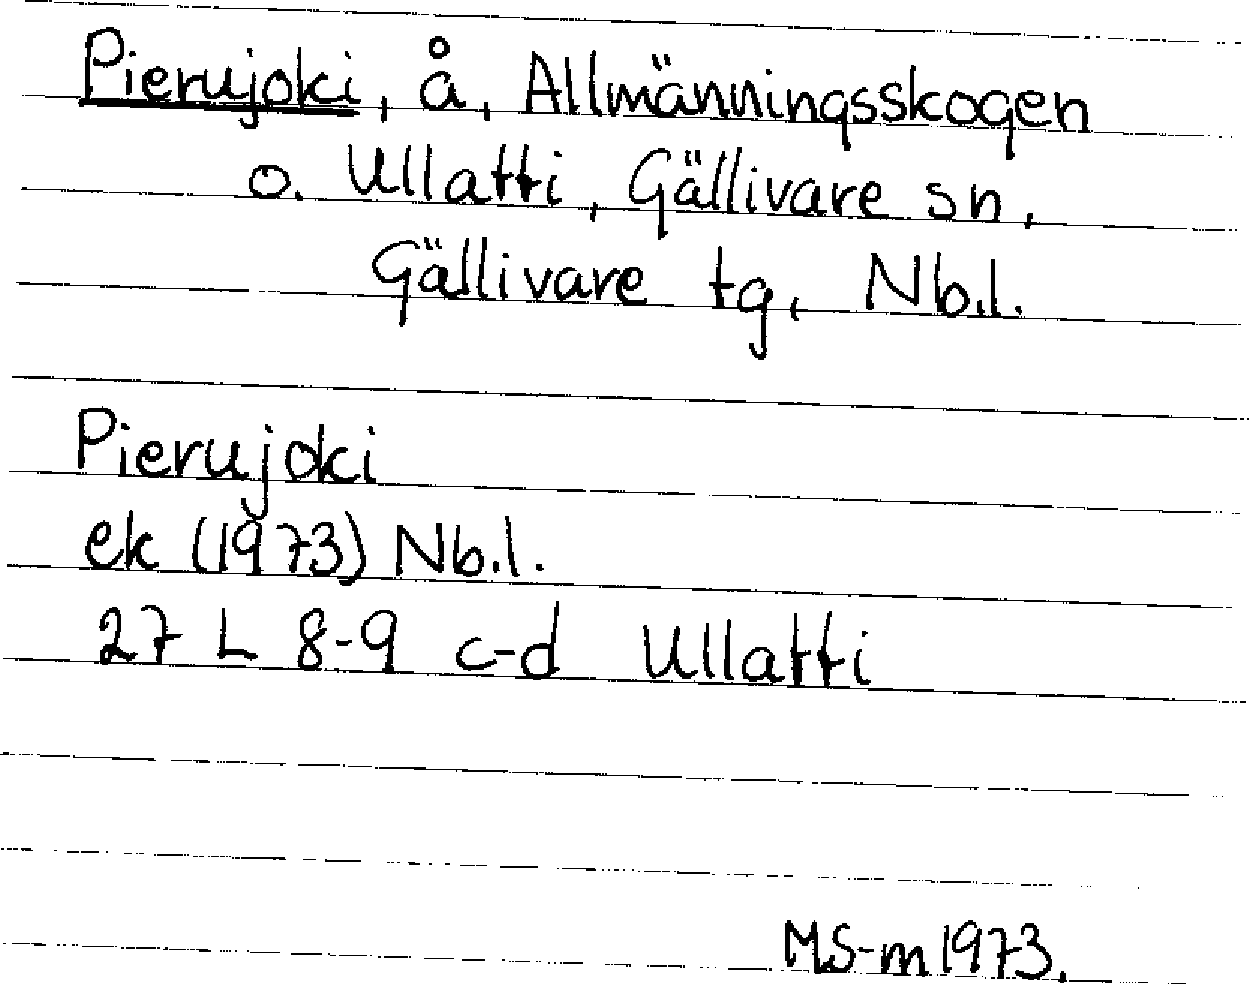 Pierujoki, å, Allmänningsskogen
o. Ullatti, Gällivare sn,
Gällivare tg, Nb.l.
Pierujoki
ek (1973) Nb.l.
27 L 8-9 c-d Ullatti
MS-m 1973.